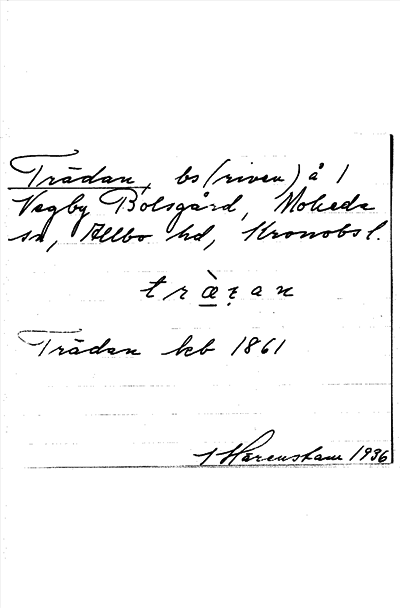 Trädan, bs (riven) å 1
Vegby Bolsgård, Moheda
sn, Allbo hd, Kronobs l.
t r æ̀ ẓ a n
Trädan kb 1861
Harenstam 1936